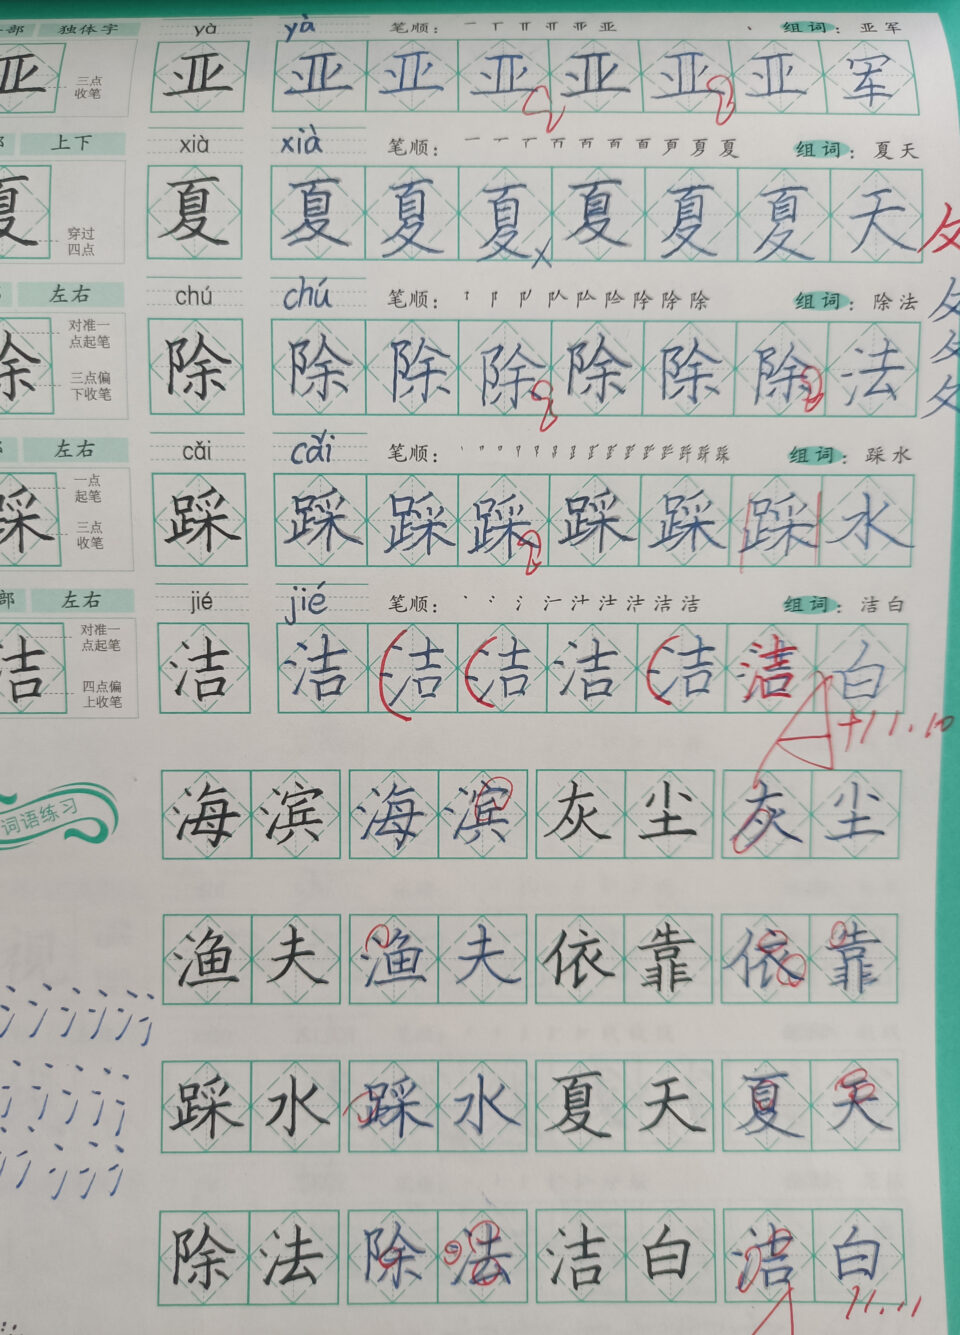 部 独体字 yà yà 笔顺： 组词：亚军
三点
收笔
亚 亚 亚 亚 亚 亚 亚 亚 军
上下 xià xià 笔顺： 组词：夏天
穿过
四点
夏 夏 夏 夏 夏 夏 夏 夏 天
左右 chú chú 笔顺： 组词：除法
对准一
点起笔
三点偏
下收笔
除 除 除 除 除 除 除 除 法
左右 cǎi cǎi 笔顺： 组词：踩水
一点
起笔
三点
收笔
踩 踩 踩 踩 踩 踩 踩 踩 水
部 左右 jié jié 笔顺： 组词：洁白
对准一
点起笔
四点偏
上收笔
洁 洁 洁 洁 洁 洁 洁 洁 白
A+ 11.10
词语练习
海滨 海滨 灰尘 灰尘
渔夫 渔夫 依靠 依靠
踩水 踩水 夏天 夏天
除法 除法 洁白 洁白
A 11.11